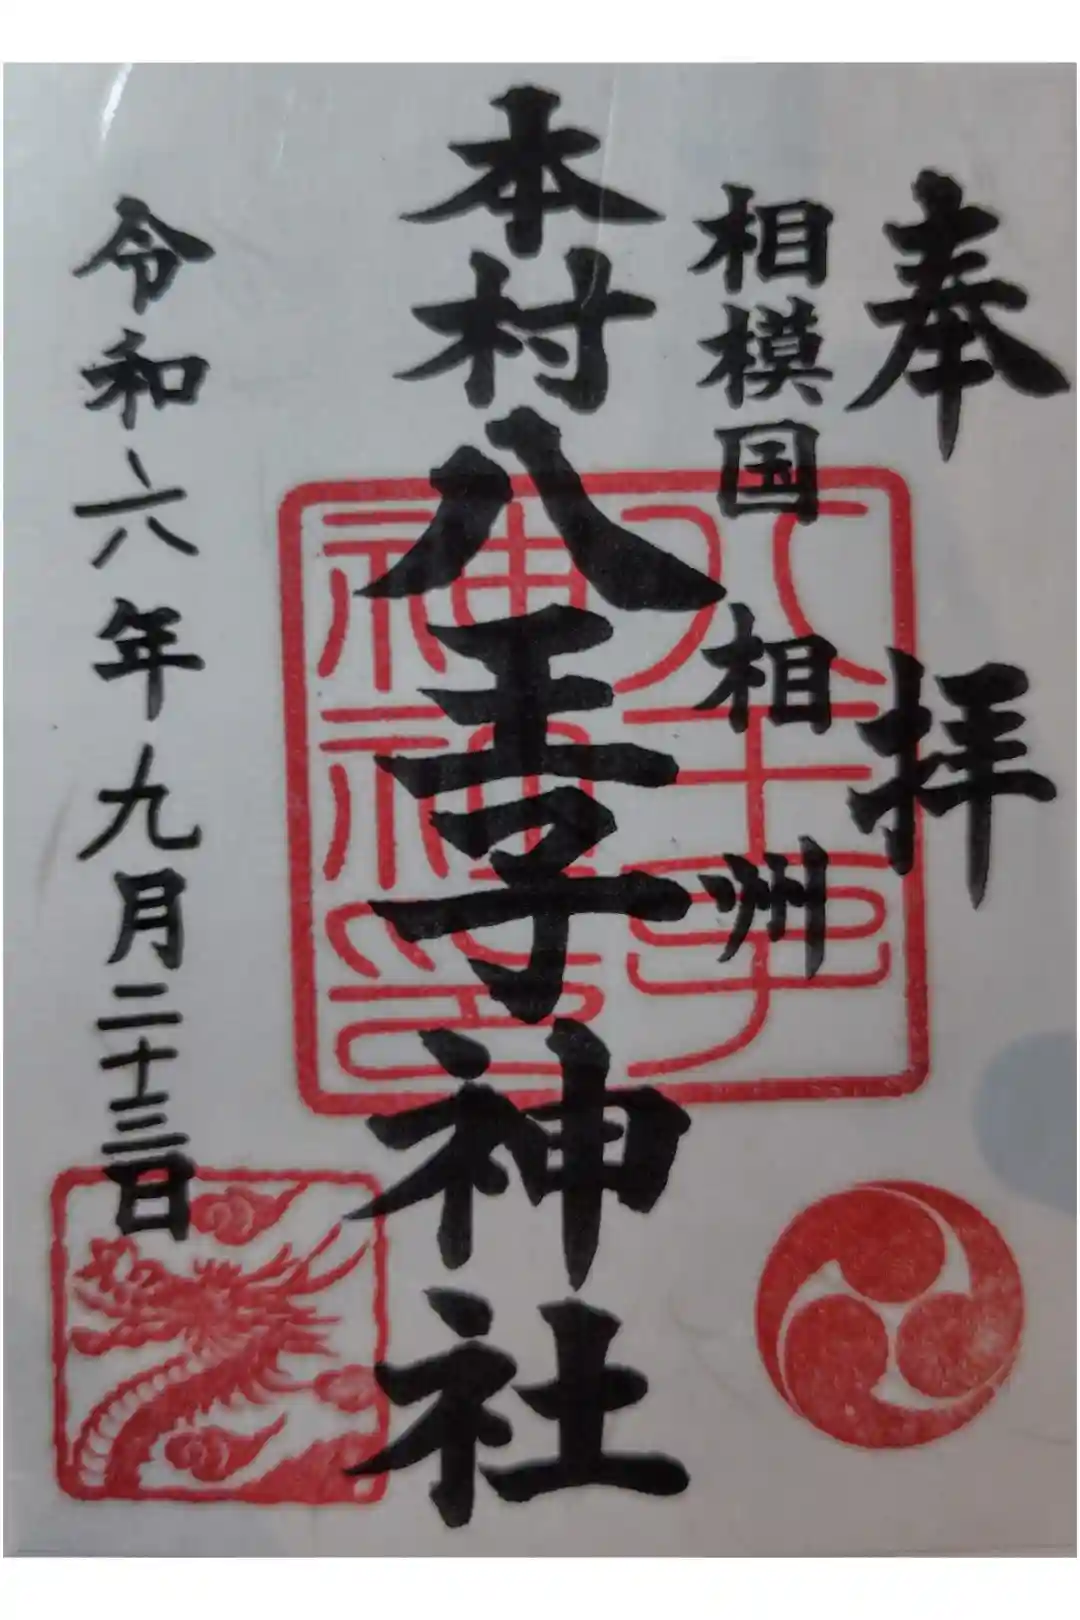 奉拝
相模国 相州
本村八王子神社
令和六年九月二十三日
八王子
神社印